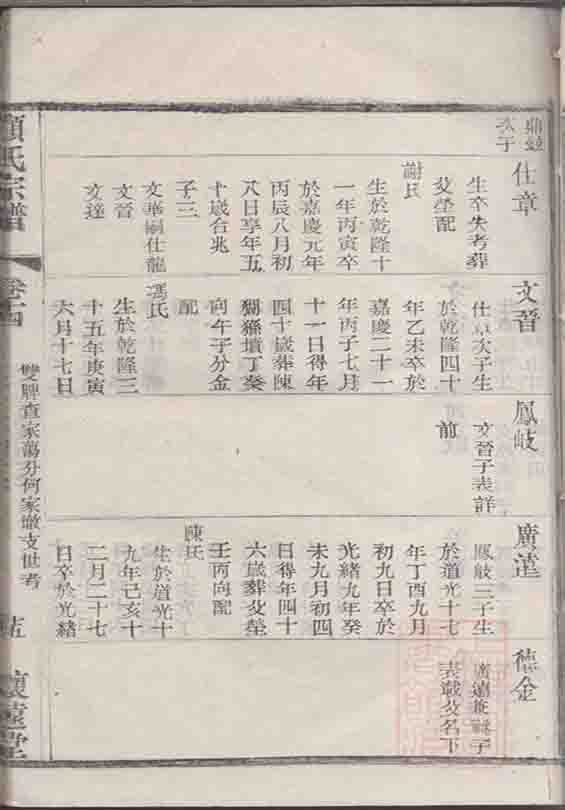 鼎鉉
次子
仕章
生卒失考葬
父塋配
謝氏
生於乾隆十
一年丙寅卒
於嘉慶元年
丙辰八月初
八日享年五
十歲合兆
子三
文華嗣仕龍
文晉
文達
文晉
仕章次子生
於乾隆四十
年乙未卒於
嘉慶二十一
年丙子七月
十一日得年
四十歲葬陳
墳丁癸
向午子分金
配
馮氏
生於乾隆三
十五年庚寅
六月十七日
鳳岐
文晉子表詳
前
廣遠
鳳岐三子生
於道光十七
年丁酉九月
初九日卒於
光緒九年癸
未九月初四
日得年四十
六歲葬父塋
壬丙向配
陳氏
生於道光十
九年己亥十
二月二十七
日卒於光緒
德金
廣遠兼祧子
表載父名下
顧氏宗譜
卷十四
雙牌查家蕩分何家墩支世考
五
懷遠堂